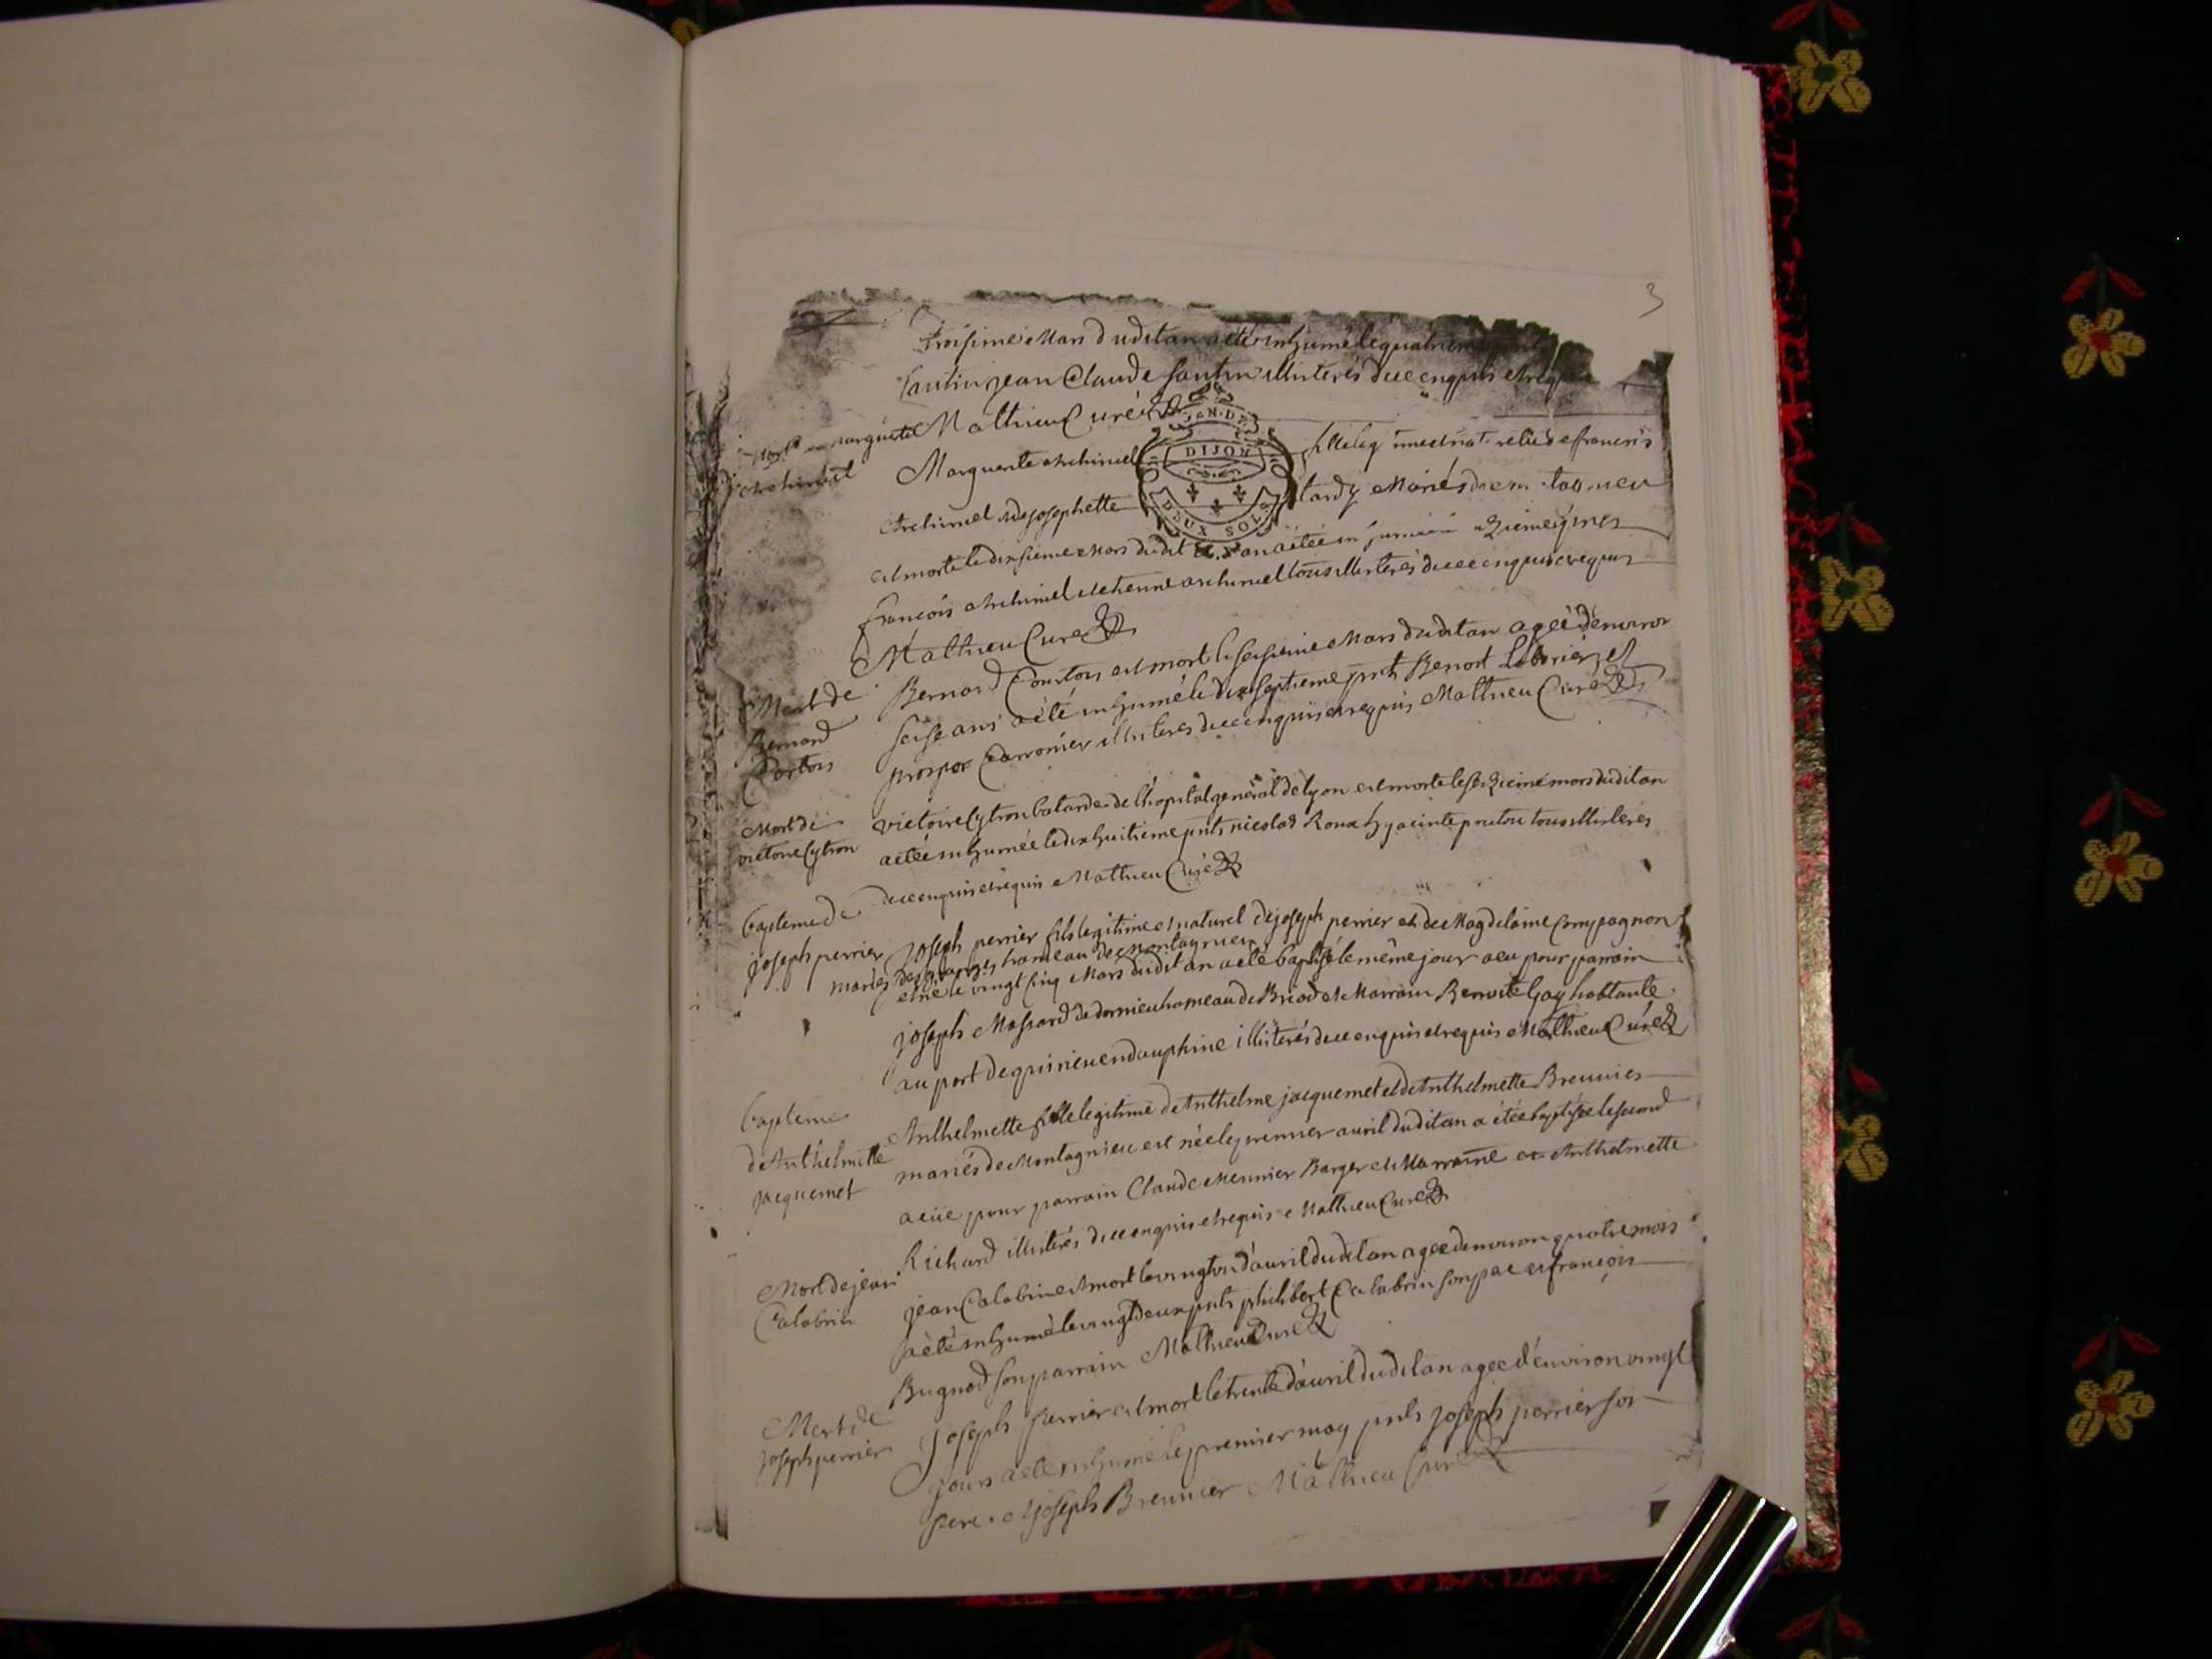 3
troisieme Mars dudit an a été inhumé le quatrieme
Santin jean Claude Santin illiterés de ce enquis et requis
Mathieu Curé
GEN. DE
DIJON
DEUX SOLS
Mort de marguerite
Archimel
Marguerite Archimel fille leg time et nat relle de francois
Archimel et de josephette tardy Mariés de m tagnieu
est morte le dixieme Mars dudit an a étée in humée onzieme pnts
francois Archimel et etienne archimel tous illiterés de ce enquis et requis
Mathieu Curé
Mort de
Bernard
Cortois
Bernard Courtois est mort le seizieme Mars dudit an agée d'environ
seise ans a été inhumé le dix septieme pnts Benoit et
prosper Carronier illiterés de ce enquis et requis Mathieu Curé
Mort de
victoire Cytron
victoire Cytron batarde de l'hopital general de lyon est morte le seizieme mars dudit an
a étée inhumée le dix huitieme pnts nicolas Roux hyacinte poutou tous illiterés
de ce enquis et requis Mathieu Curé
bapteme de
joseph perrier
joseph perrier fils legitime et naturel de joseph perrier et de Magdelaine Compagnon
mariés des granges hameau de Montagnieu
est né le vingt cinq Mars dudit an a été baptisé le même jour a eu pour parrain
joseph Massard de dornieu hameau de Briod et Marrain Benoite Gay habtante
au port de quirieu en dauphine illiterés de ce enquis et requis Mathieu Curé
bapteme
de Anthelmette
jacquemet
Anthelmette fille legitime de Anthelme jacquemet et de Anthelmette Breunier
mariés de Montagnieu est née le premier avril dudit an a étée baptisée le second
a eüe pour parrain Claude Meunier Barger et Marraine Anthelmette
Richard illiterés de ce enquis et requis Mathieu Curé
Mort de jean
Calabrin
jean Calabrin est mort le vingt un d'avril dudit an agee d'environ quatre mois
a été inhumé le vingt deux pnts philibert Calabrin son pere et françois
Bugnod son parrain Mathieu Curé
Mort de
joseph perrier
joseph perrier est mort le trente d'avril dudit an agee d'environ vingt
jours a été inhumé le premier may pnts joseph perrier son
pere et joseph Breunier Mathieu Curé